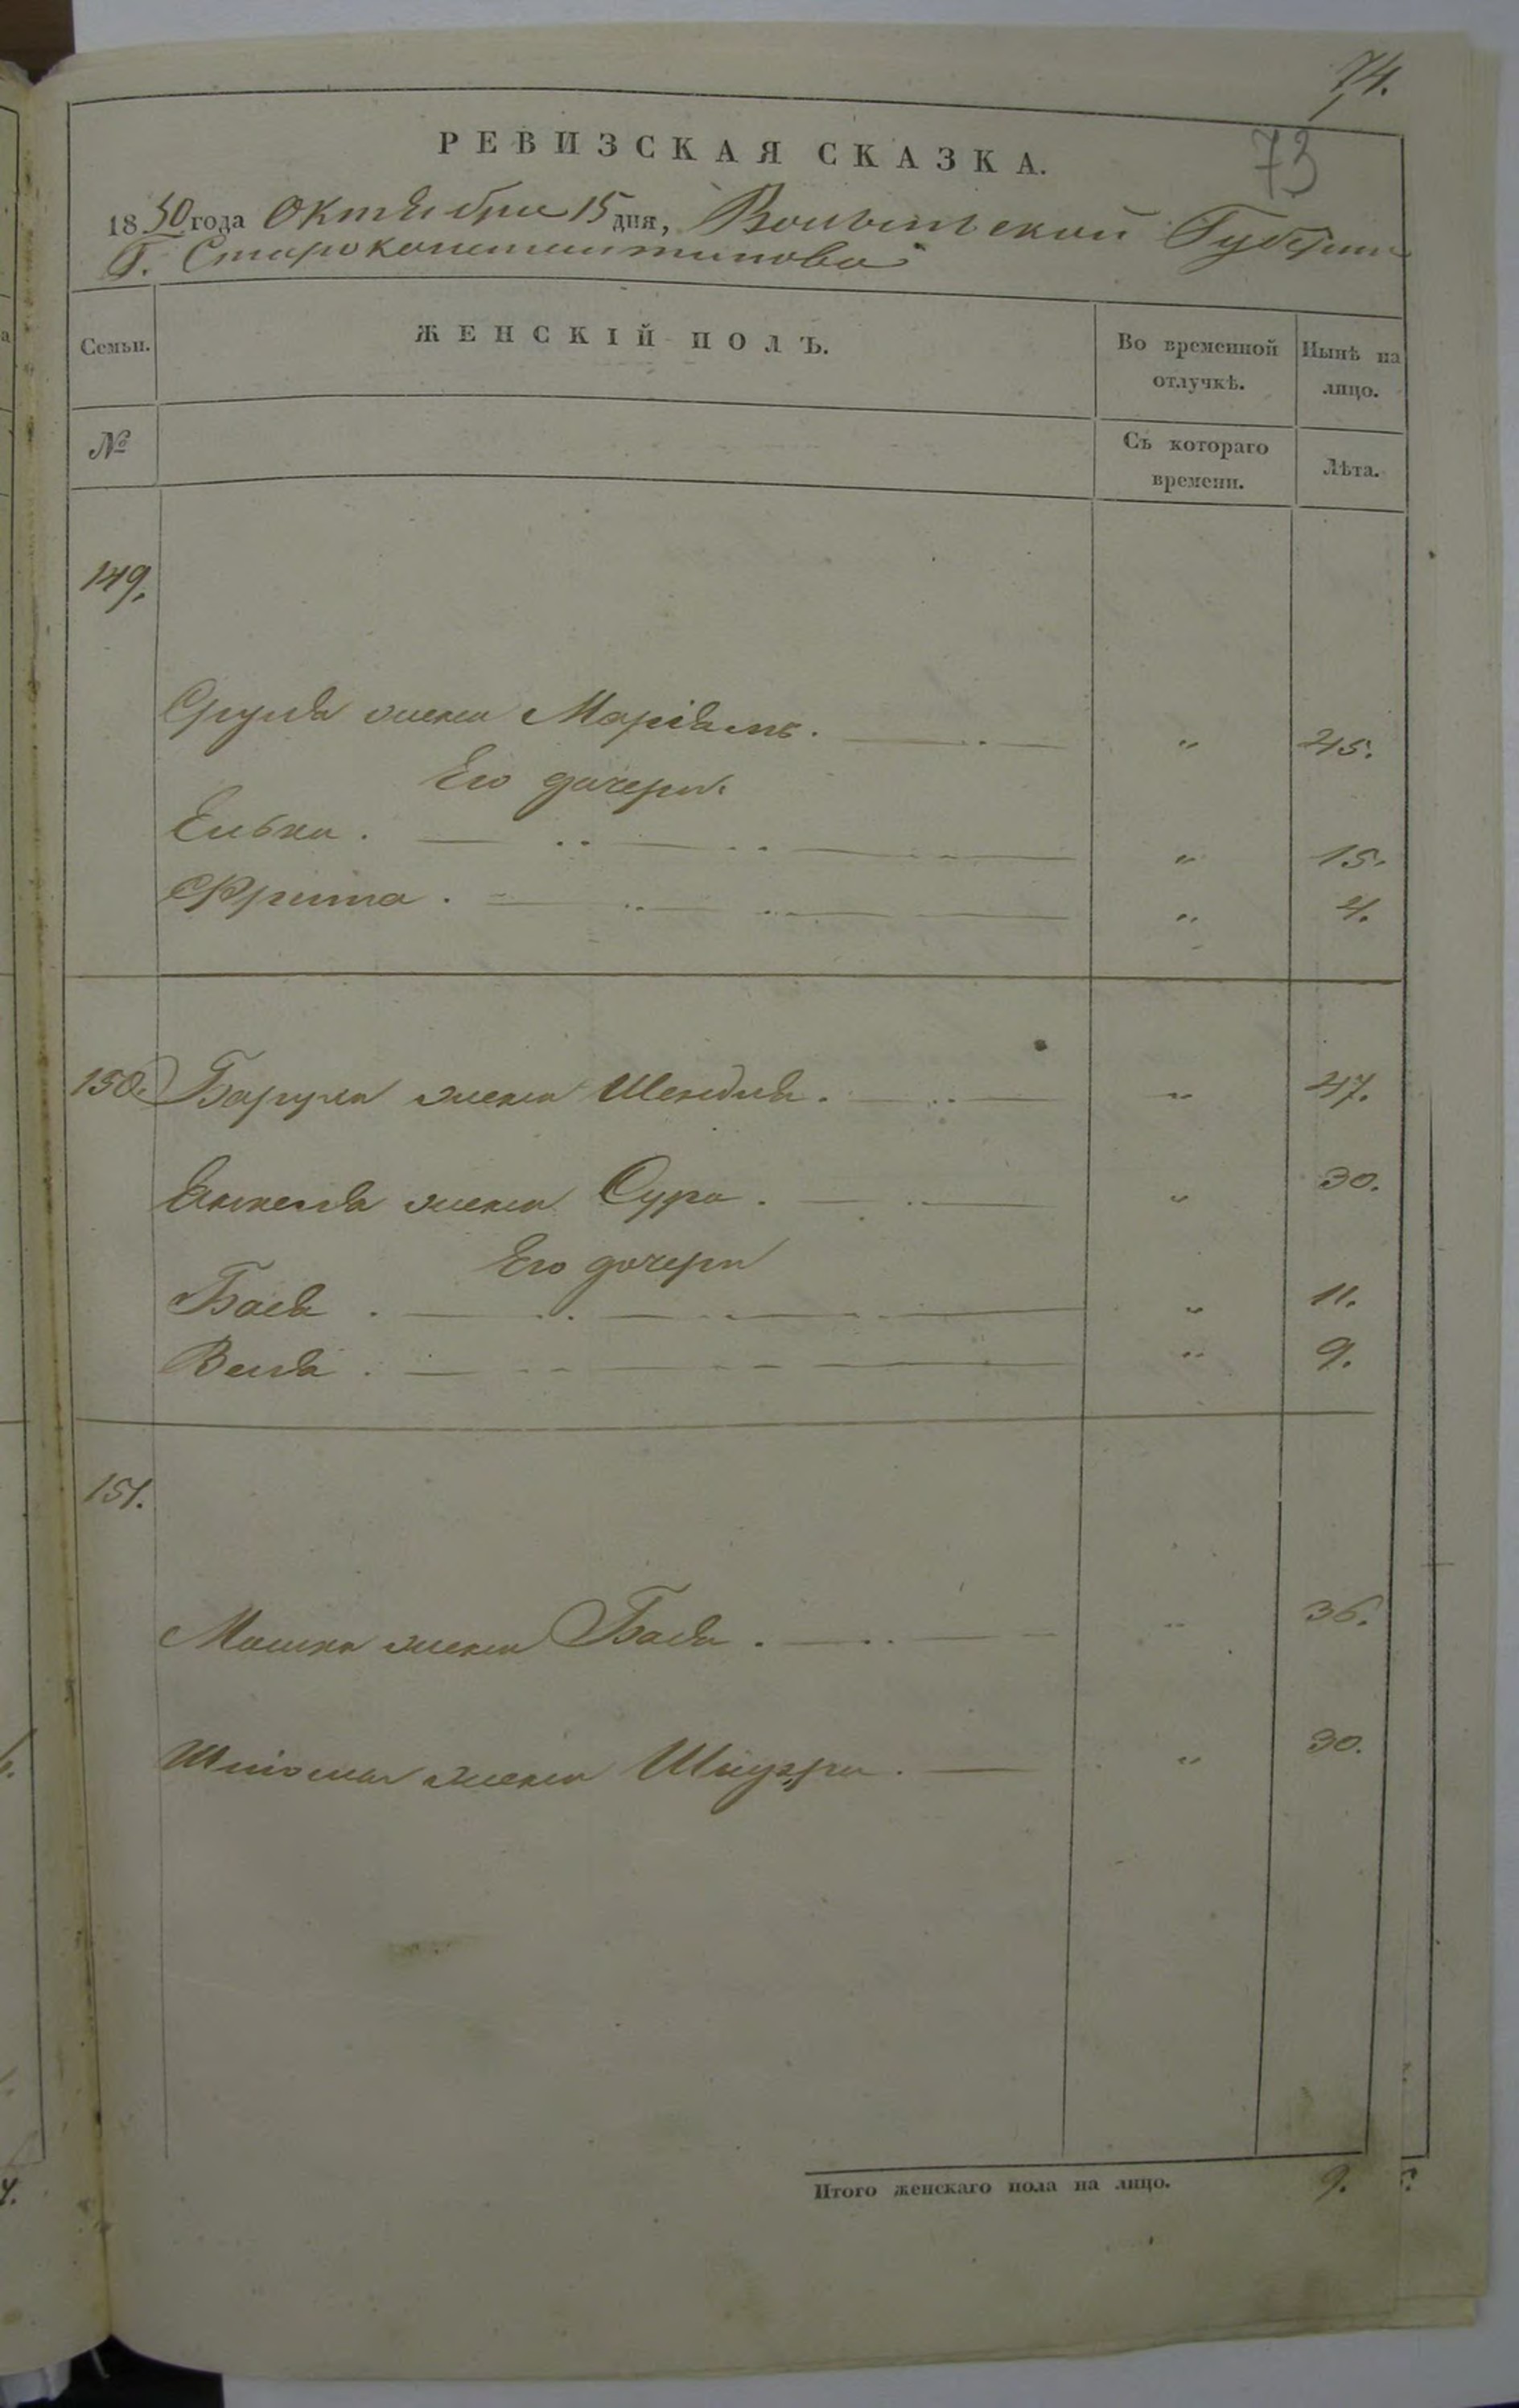 74.
73
РЕВИЗСКАЯ СКАЗКА.
1850 года Октября 15 дня, Волынской Губернии
Г. Староконстантинова
Семьи.
ЖЕНСКІЙ ПОЛЪ.
Во временной отлучкѣ.
Нынѣ на лицо.
№
Съ котораго времени.
Лѣта.
149.
Сруля жена Маріамъ. " 45.
Его дочери.
Елька. " 15.
Фрима. " 4.
150. Баруха жена Шендля. " 47.
Янкеля жена Сура. " 30.
Его дочери
Бася " 11.
Веля " 9.
151.
Мошка жена Бася. " 36.
Шліомы жена " 30.
Итого женскаго пола на лицо. 9.